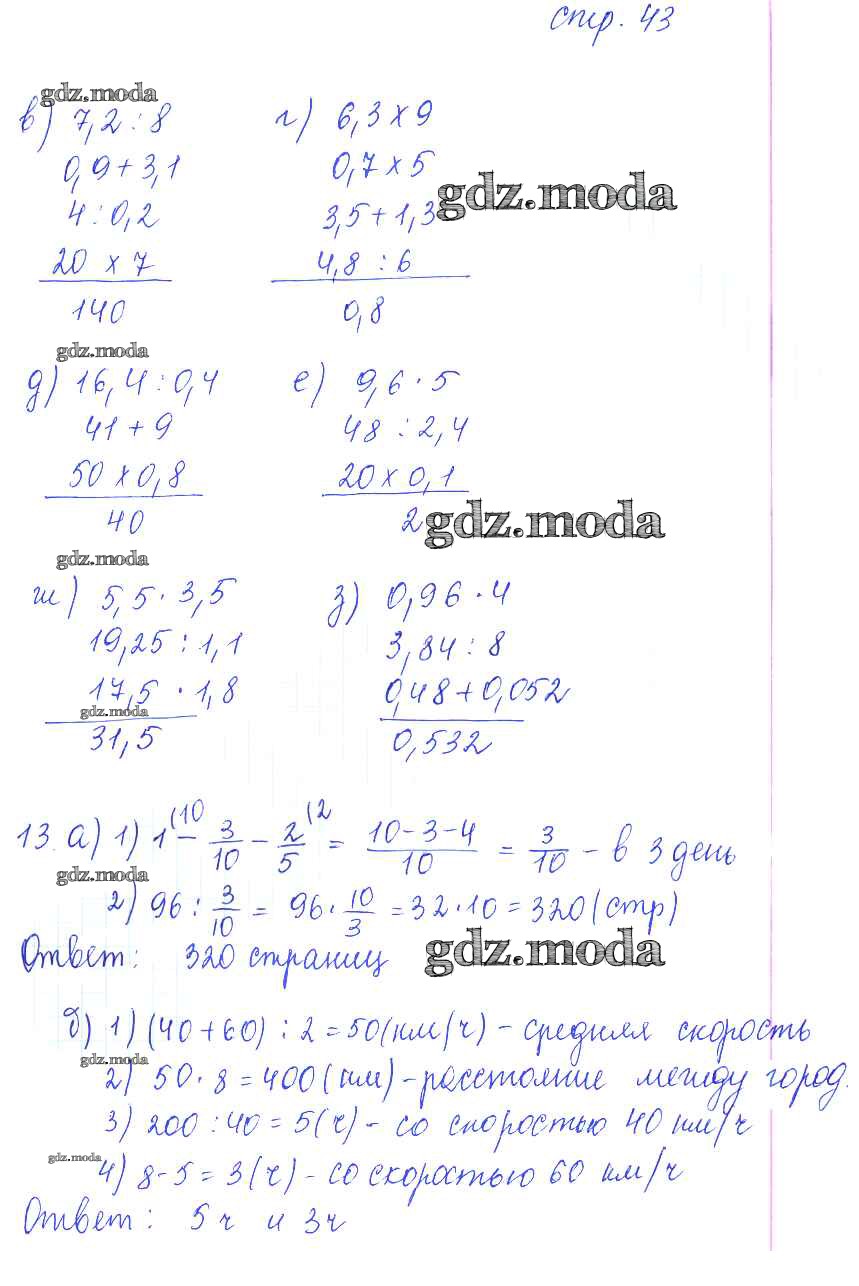 стр. 43
gdz.moda
в) 7,2 : 8
0,9 + 3,1
4 : 0,2
20 х 7
140
г) 6,3 х 9
0,7 х 5
gdz.moda
3,5 + 1,3
4,8 : 6
0,8
gdz.moda
д) 16,4 : 0,4
41 + 9
50 х 0,8
40
е) 9,6 · 5
48 : 2,4
20 х 0,1
2
gdz.moda
gdz.moda
ж) 5,5 · 3,5
19,25 : 1,1
17,5 · 1,8
gdz.moda
31,5
з) 0,96 · 4
3,84 : 8
0,48 + 0,052
0,532
13. а) 1) 1(10 − 3/10 − 2/5(2 = 10-3-4/10 = 3/10 - в 3 день
gdz.moda
2) 96 : 3/10 = 96 · 10/3 = 32 · 10 = 320 (стр)
Ответ: 320 страниц
gdz.moda
б) 1) (40 + 60) : 2 = 50 (км/ч) - средняя скорость
gdz.moda
2) 50 · 8 = 400 (км) - расстояние между город.
3) 200 : 40 = 5 (ч) - со скоростью 40 км/ч
gdz.moda
4) 8 - 5 = 3 (ч) - со скоростью 60 км/ч
Ответ: 5 ч и 3 ч